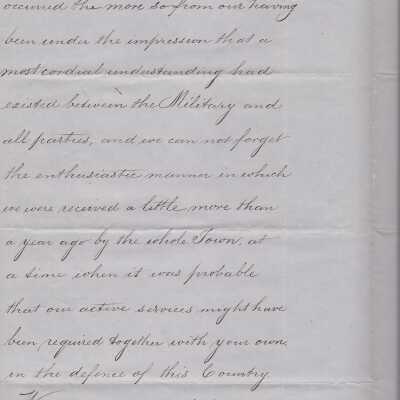 occurred the more so from our having
been under the impression that a
most cordial understanding had
existed between the Military and
all parties, and we can not forget
the enthusiastic manner in which
we were received a little more than
a year ago by the whole Town, at
a time when it was probable
that our active services might have
been required together with your own
in the defence of this Country.